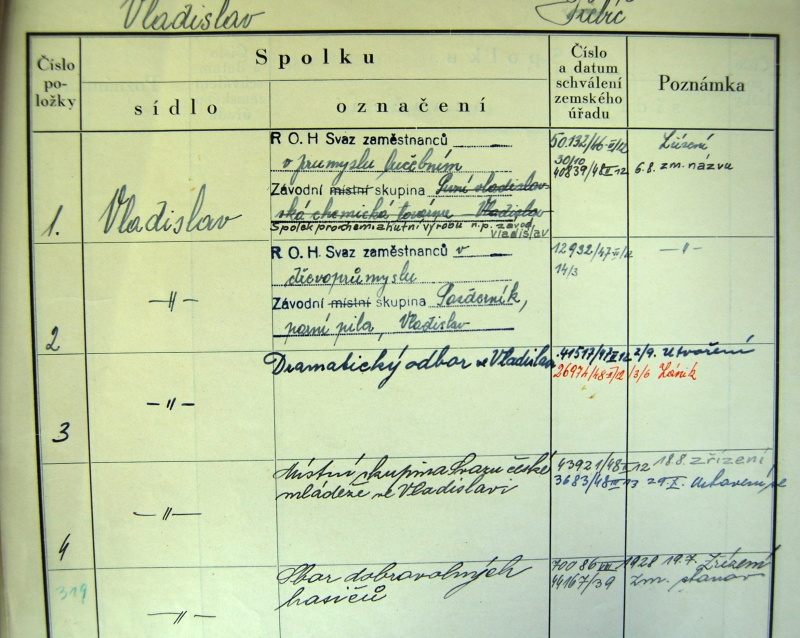 Vladislav Třebíč
Číslo položky
Spolku
sídlo
označení
Číslo a datum schválení zemského úřadu
Poznámka
1.
Vladislav
R O. H Svaz zaměstnanců
v průmyslu lučebním
Závodní místní skupina První vladislav-
ská chemická továrna Vladislav
Spolek pro chem. a hutní výrobu n.p. závod
Vladislav
50132/46-II/12
30/10
40839/48 II 12
Zřízení
6.8. zm. názvu
2
-"-
R O. H Svaz zaměstnanců v
dřevoprůmyslu
Závodní místní skupina Pozderník,
parní pila, Vladislav
12932/47-II/12
14/3
-"-
3
-"-
Dramatický odbor ve Vladislavi
41517/47 II 12 2/9. utvoření
26974/48-II/12 13/6 Zánik
4
-"-
Místní skupina Svazu české
mládeže ve Vladislavi
43921/48 II 12 18.8. zřízení
3683/48 III 13 29. X. ustavení se
319
-"-
Sbor dobrovolných
hasičů
70086 VIII 1928 19.7. Zřízení
44167/39 zm. stanov